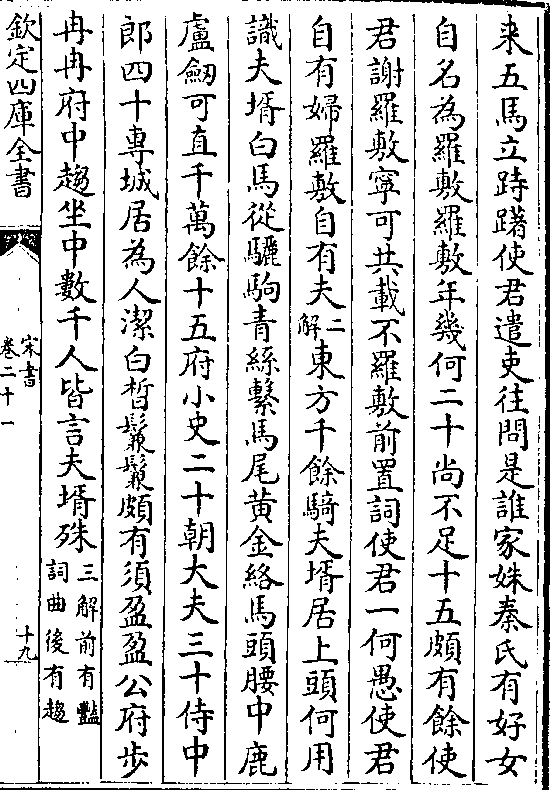 来五馬立跱躇使君遣吏往問是誰家姝秦氏有好女
自名為羅敷羅敷年幾何二十尚不足十五頗有餘使
君謝羅敷寧可共載不羅敷前置詞使君一何愚使君
自有婦羅敷自有夫二解東方千餘騎夫壻居上頭何用
識夫壻白馬從驪駒青絲繫馬尾黄金絡馬頭腰中鹿
盧劒可直千萬餘十五府小史二十朝大夫三十侍中
郎四十專城居為人潔白皙鬑鬑頗有須盈盈公府步
冉冉府中趨坐中數千人皆言夫壻殊三解前有豔詞曲後有趨
欽定四庫全書
宋書
卷二十一
十九